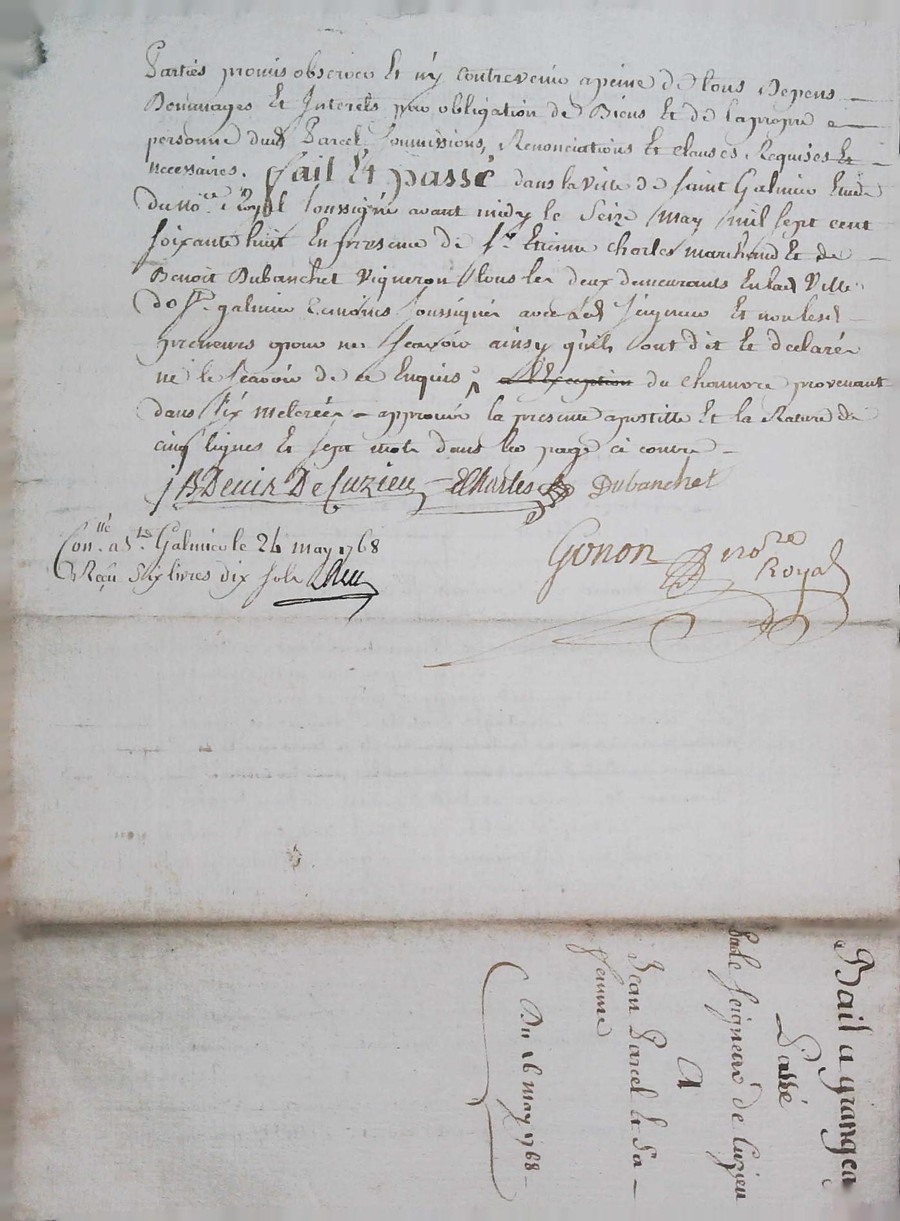 Parties promis observer et n'y contrevenir a peine de tous depens
Dommages et Interets par obligation de Biens et de la propre
personne dud Parcel Soumissions, Renonciations et clauses Requises et
necessaires. fait et passé dans la ville de Saint Galmier Etude
du no.re Royal soussigné avant midy le seize may mil sept cent
soixante huit en presence de sr. Etienne charles marchand et de
Benoit Dubanchet vigneron tous les deux demeurants en lad ville
de St. galmier temoins soussignés avec led seigneur et non lesd
preneurs pour ne sçavoir ainsy qu'ils ont dit et declaré
ne le sçavoir de ce Enquis a l'Exception du chanvre provenant
dans six meterées approuvé la presente apostille et la Rature de
cinq lignes et sept mots dans les page ci contre
JB Denis De Cuzieu Charles Dubanchet
Con.lle a St. Galmier le 24 may 1768
Reçu six livres dix sols
Gonon nore
Royal
Bail a grangea
Passé
Par le seigneur de Cuzieu
A
Jean Parcel et sa
femme
Du 16 may 1768